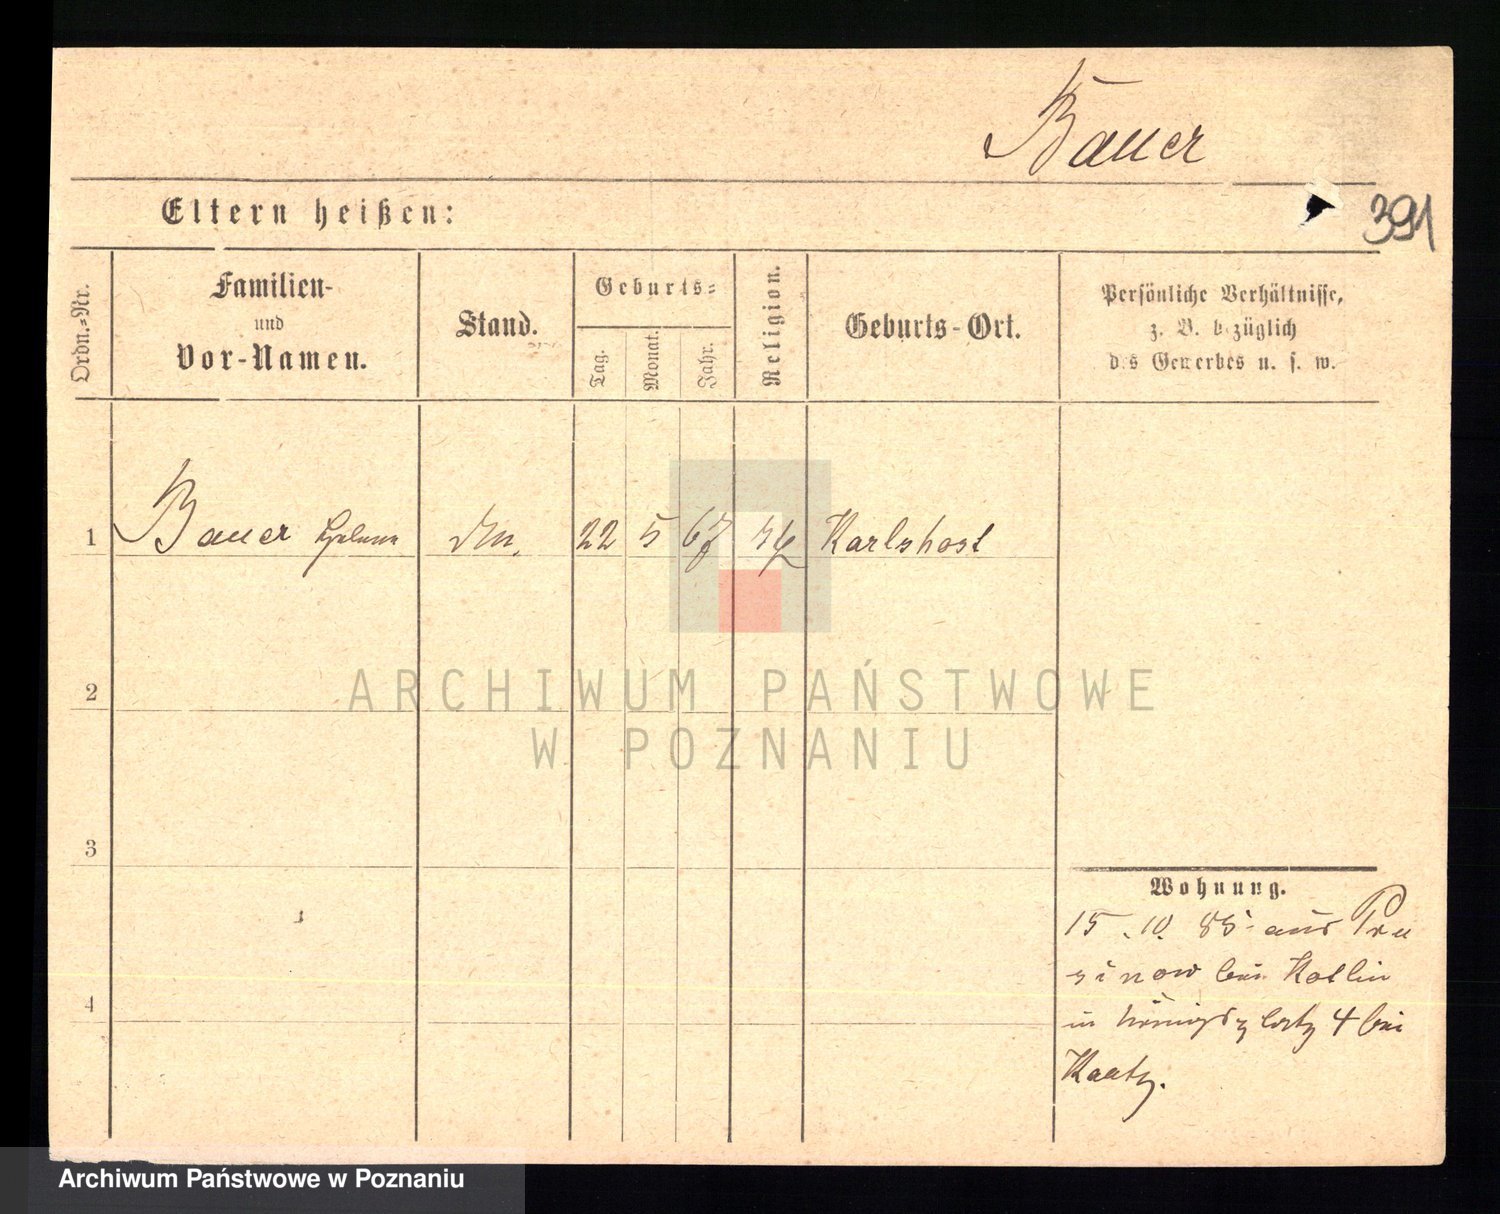 Bauer
Eltern heißen:
391
Ordn.=Nr.
Familien-
und
Vor-Namen.
Stand.
Geburts=
Tag.
Monat.
Jahr.
Religion.
Geburts-Ort.
Persönliche Verhältnisse,
z. B. bezüglich
des Gewerbes u. s. w.
1 Bauer 22 5 67 Karlshost
2
3
4
Wohnung.
15. 10. 85 aus Pru
sinow bei Kotlin
in Königsplatz 4 bei
Kaatz.
ARCHIWUM PAŃSTWOWE
W POZNANIU
Archiwum Państwowe w Poznaniu